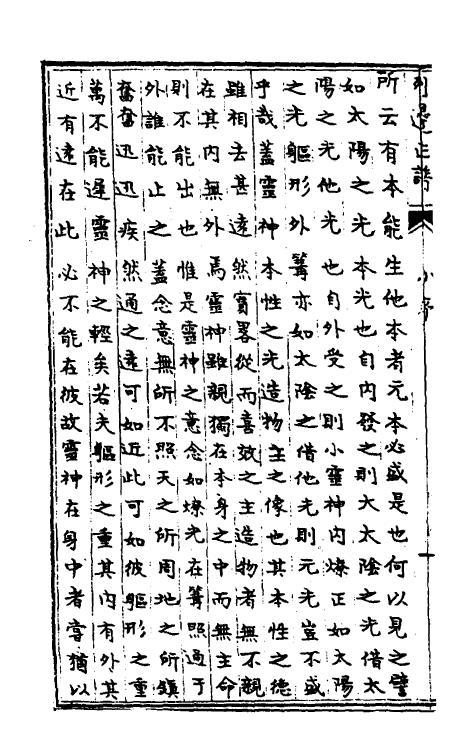 所云有本能生他本者元本必盛是也何以見之譬
如太陽之光本光也自内發之則大太陰之光借太
陽之光他光也自外受之則小靈神内燎正如太陽
之光軀形外篝亦如太陰之借他光則元光豈不盛
乎哉蓋靈神本性之光造物主之像也其本性之德
雖相去甚遠然實畧從而喜效之主造物者無不親
在其内無外焉靈神雖親獨在本身之中而無主命
則不能出也惟是靈神之意念如燎光在篝照通于
外誰能止之蓋念意無所不照天之所周地之所鎮
奮奮迅迅疾然通之遠可如近此可如彼軀形之重
萬不能遲靈神之輕矣若夫軀形之重其内有外其
近有遠在此必不能在彼故靈神在身中者寧猶以